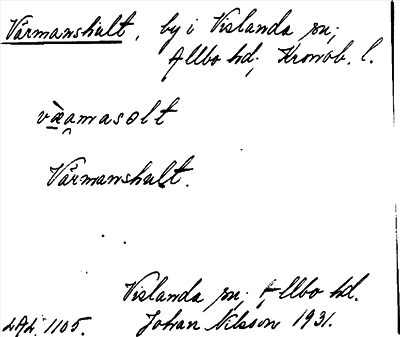 Värmanshult, by i Vislanda sn;
Allbo hd; Kronob. l.
Värmanshult.
Vislanda sn; Allbo hd.
Johan Nilsson 1931.
1105.